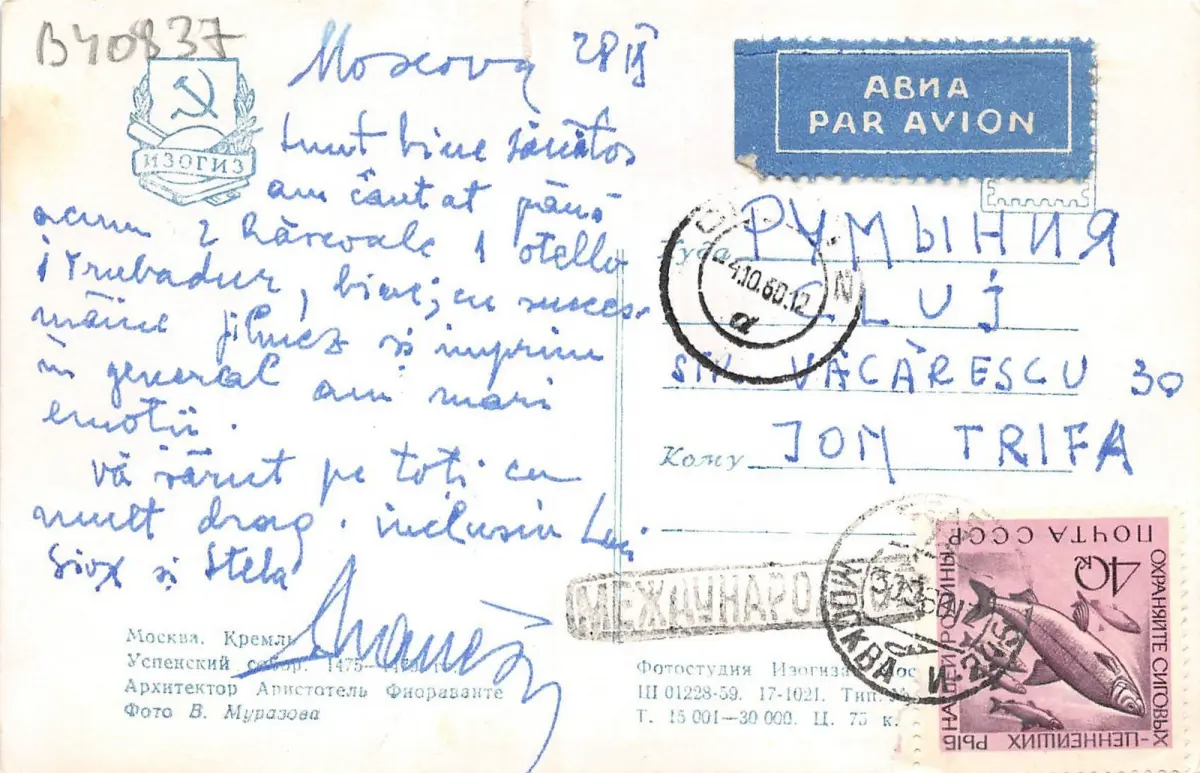 B40837
ИЗОГИЗ
Moscova 28 IX
Sunt bine sănătos
am cântat până
acum 2 Hărcoale 1 otello
1 Trubadur, bine; cu succes.
mâine filmez si imprim
în general am mari
emotii.
vă sărut pe toti cu
mult drag. inclusiv
si Stela
Москва. Кремль
Успенский собор. 1475—
Архитектор Аристотель Фиораванте
Фото В. Муразова
АВИА
PAR AVION
Куда РУМЫНИЯ
4.10.60.12
CLUJ
VĂCĂRESCU 30
Кому ION TRIFA
МЕЖДУНАРО
МОСКВА
ПОЧТА СССР
40к
ОХРАНЯЙТЕ СИГОВЫХ
-ЦЕННЕЙШИХ РЫБ
НАШЕЙ РОДИНЫ
Фотостудия Изогиза
Ш 01228-59. 17-1021. Тип.
Т. 15 001—30 000. Ц. 75 к.